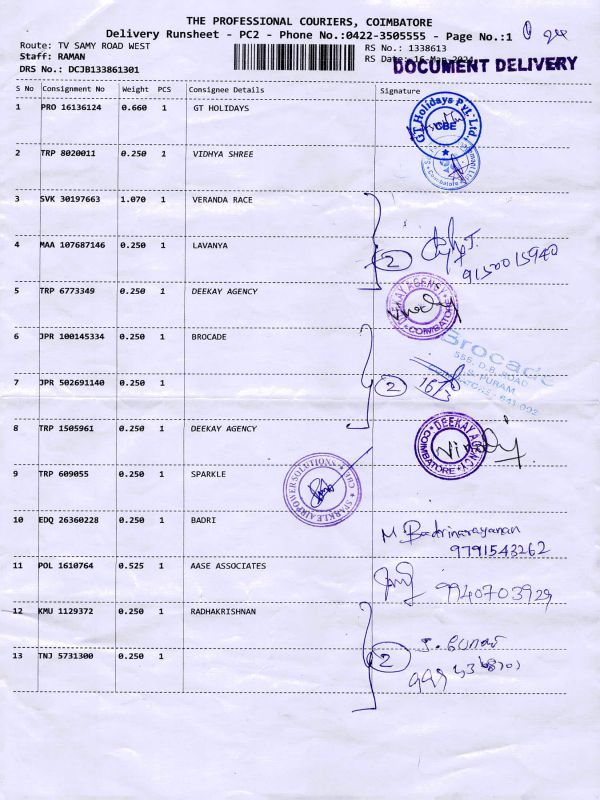 THE PROFESSIONAL COURIERS, COIMBATORE
Delivery Runsheet - PC2 - Phone No.:0422-3505555 - Page No.:1
Route: TV SAMY ROAD WEST
RS No.: 1338613
Staff: RAMAN
RS Date: 16-Mar-2024
DRS No.: DCJB133861301
DOCUMENT DELIVERY
S No Consignment No Weight PCS Consignee Details Signature
1 PRO 16136124 0.660 1 GT HOLIDAYS
GT Holidays Pvt. Ltd.
CBE
2 TRP 8020011 0.250 1 VIDHYA SHREE
3 SVK 30197663 1.070 1 VERANDA RACE
4 MAA 107687146 0.250 1 LAVANYA
2
9150015940
5 TRP 6773349 0.250 1 DEEKAY AGENCY
DEEKAY AGENCY
COIMBATORE
6 JPR 100145334 0.250 1 BROCADE
Brocade
555, D.B. ROAD
R.S. PURAM
COIMBATORE - 641 002
7 JPR 502691140 0.250 1
2
16/3
8 TRP 1505961 0.250 1 DEEKAY AGENCY
DEEKAY AGENCY
COIMBATORE
9 TRP 609055 0.250 1 SPARKLE
SPARKLE AIRPOWER SOLUTIONS
CBE
10 EDQ 26360228 0.250 1 BADRI
M. Badrinarayanan
9791543262
11 POL 1610764 0.525 1 AASE ASSOCIATES
9940703929
12 KMU 1129372 0.250 1 RADHAKRISHNAN
13 TNJ 5731300 0.250 1
2